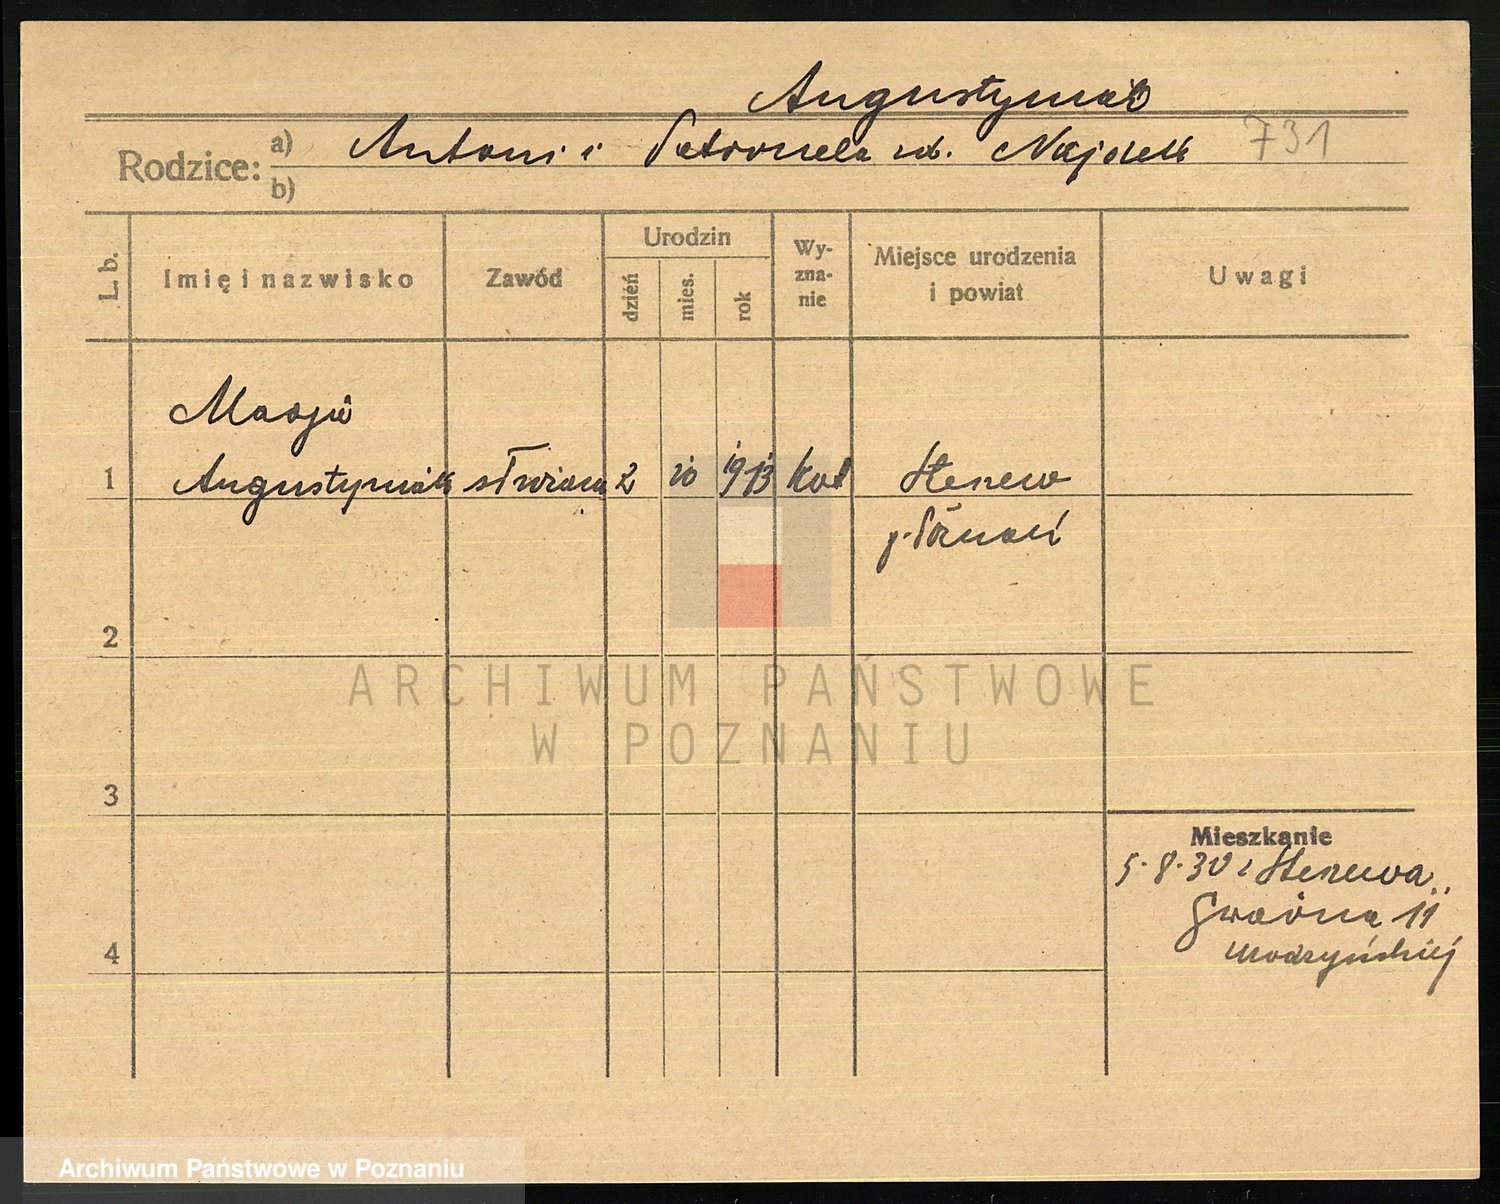 Augustyniak
Rodzice: a) Antoni i Petronela ur. Majchrz 731
b)
L. b. Imię i nazwisko Zawód Urodzin dzień mies. rok Wy-zna-nie Miejsce urodzenia i powiat Uwagi
Marja
1 Augustyniak 2 10 1913 kat Stenew
p. Poznań
2
3
Mieszkanie
5.8.30 z Stenewa
11
4
ARCHIWUM PAŃSTWOWE
W POZNANIU
Archiwum Państwowe w Poznaniu